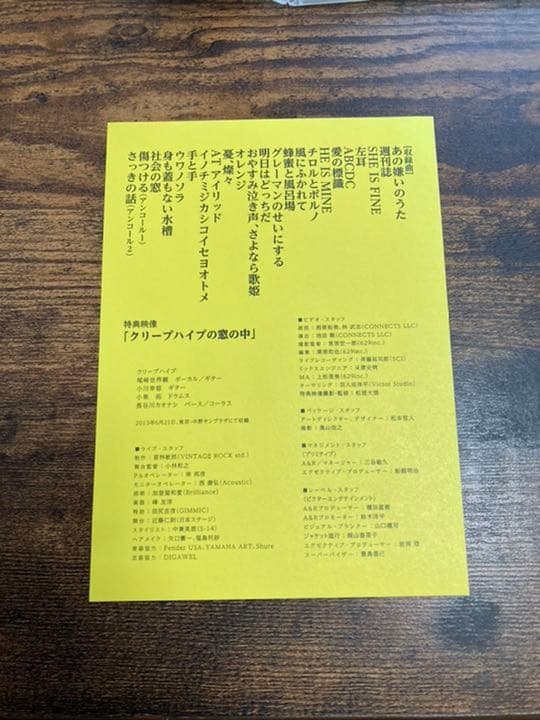 【収録曲】
あの嫌いのうた
週刊誌
SHE IS FINE
左耳
ABCDC
愛の標識
HE IS MINE
チロルとポルノ
風にふかれて
蜂蜜と風呂場
グレーマンのせいにする
明日はどっちだ
おやすみ泣き声、さよなら歌姫
オレンジ
憂、燦々
ATアイリッド
イノチミジカシコイセヨオトメ
手と手
ウワノソラ
身も蓋もない水槽
社会の窓
傷つける(アンコール1)
さっきの話(アンコール2)
特典映像
「クリープハイプの窓の中」
クリープハイプ
尾崎世界観 ボーカル/ギター
小川幸慈 ギター
小泉 拓 ドラムス
長谷川カオナシ ベース/コーラス
2013年6月21日、東京・中野サンプラザにて収録
■ライブ・スタッフ
制作:(VINTAGE ROCK std.)
舞台監督:小林和之
P.Aオペレーター:
モニターオペレーター:(Acoustic)
照明:(Brilliance)
楽器:
特効:(GIMMIC)
舞台:近藤仁則(日本ステージ)
スタイリスト:(S-14)
ヘアメイク:
楽器協力:Fender USA, YAMAHA ART, Shure
衣装協力:DIGAWEL
■ビデオ・スタッフ
(CONNECTS LLC)
演出:(CONNECTS LLC)
撮影監督:(629inc.)
編集:(629inc.)
ライブレコーディング:(SCI)
ミックスエンジニア:
MA:(629inc.)
オーサリング:(Victor Studio)
特典映像撮影・監督:松居大悟
■パッケージ・スタッフ
アートディレクター、デザイナー:
撮影:
■マネジメント・スタッフ
(プリミティブ)
A&R/マネージャー:
エグゼクティブ・プロデューサー:
■レーベル・スタッフ
(ビクターエンタテインメント)
A&Rプロデューサー:
A&Rプロモーター:鈴木洋平
ビジュアル・プランナー:
ジャケット進行:
エグゼクティブ・プロデューサー:
スーパーバイザー: